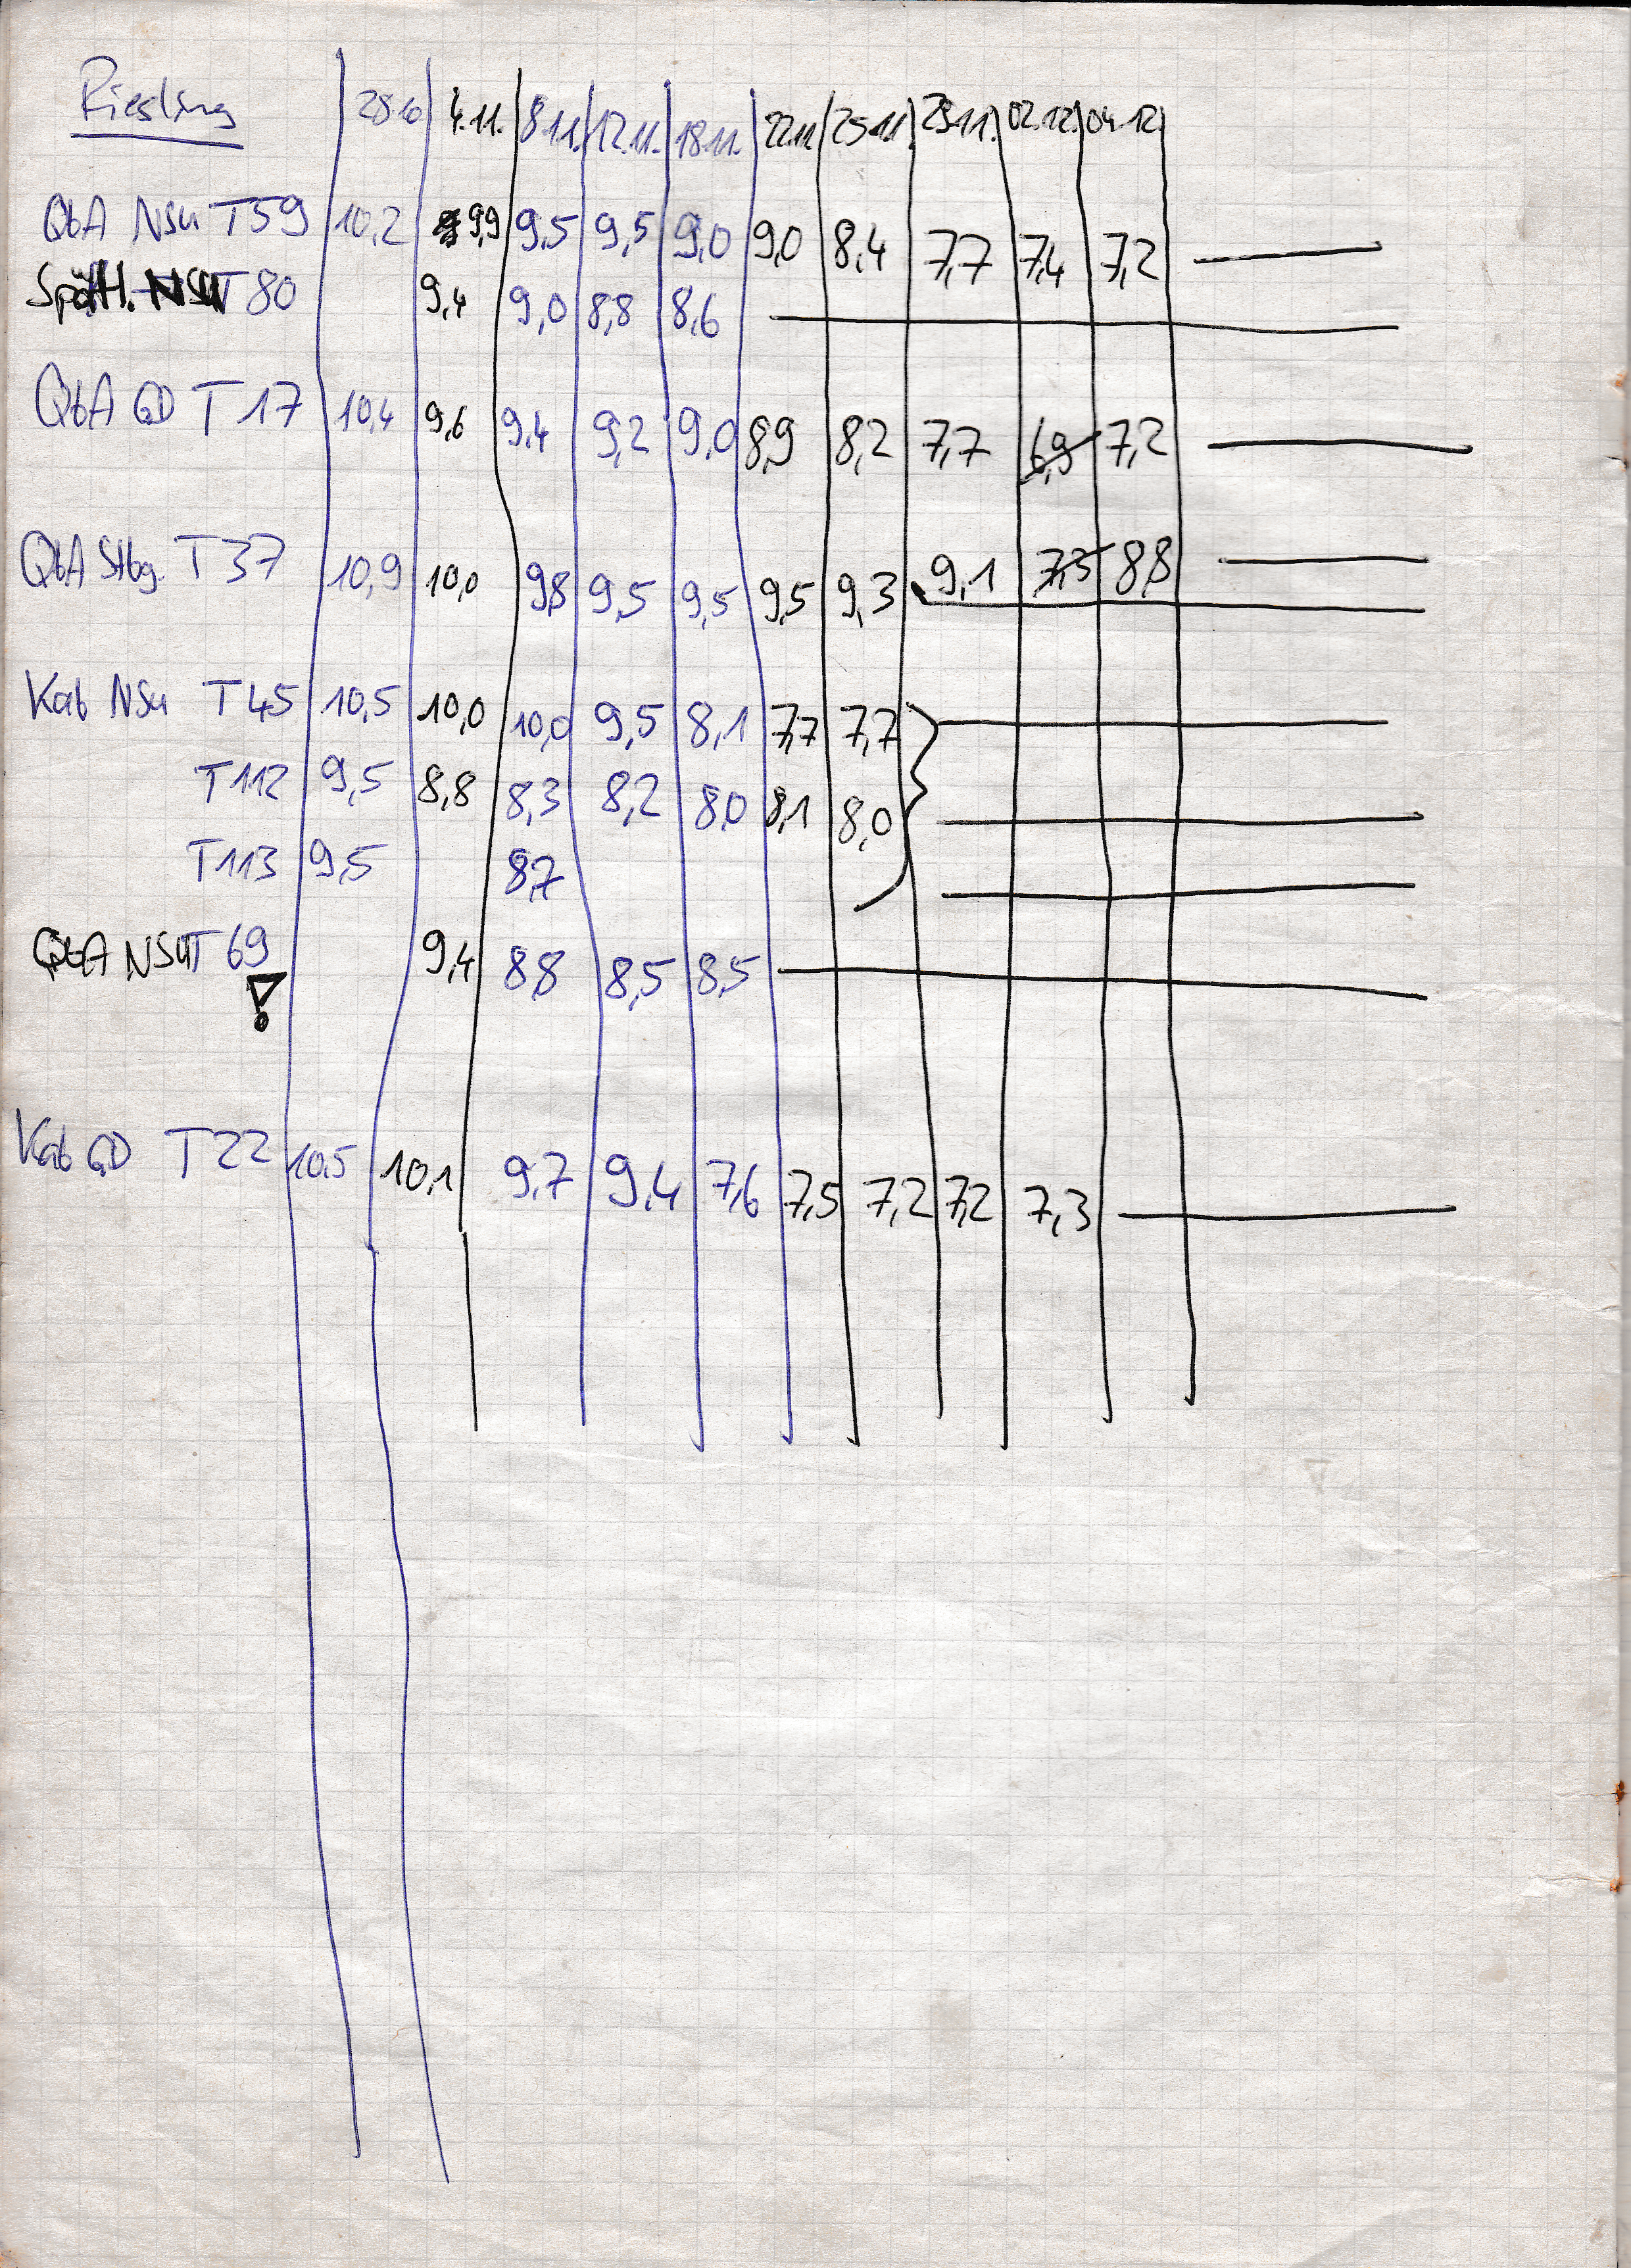 Riesling 28.10 4.11. 8.11. 12.11. 18.11. 22.11 25.11. 29.11. 02.12. 04.12.
QbA NSu T59 10,2 9,9 9,5 9,5 9,0 9,0 8,4 7,7 7,4 7,2
Spätl. NSu T80 9,4 9,0 8,8 8,6
QbA GD T17 10,4 9,6 9,4 9,2 9,0 8,9 8,2 7,7 6,9 7,2
QbA Stbg. T37 10,9 10,0 9,8 9,5 9,5 9,5 9,3 9,1 7,3 8,8
Kab NSu T45 10,5 10,0 10,0 9,5 8,1 7,7 7,7
T112 9,5 8,8 8,3 8,2 8,0 8,1 8,0
T113 9,5 8,7
QbA NSu T69 9,4 8,8 8,5 8,5
!
Kab GD T22 10,5 10,1 9,7 9,4 7,6 7,5 7,2 7,2 7,3